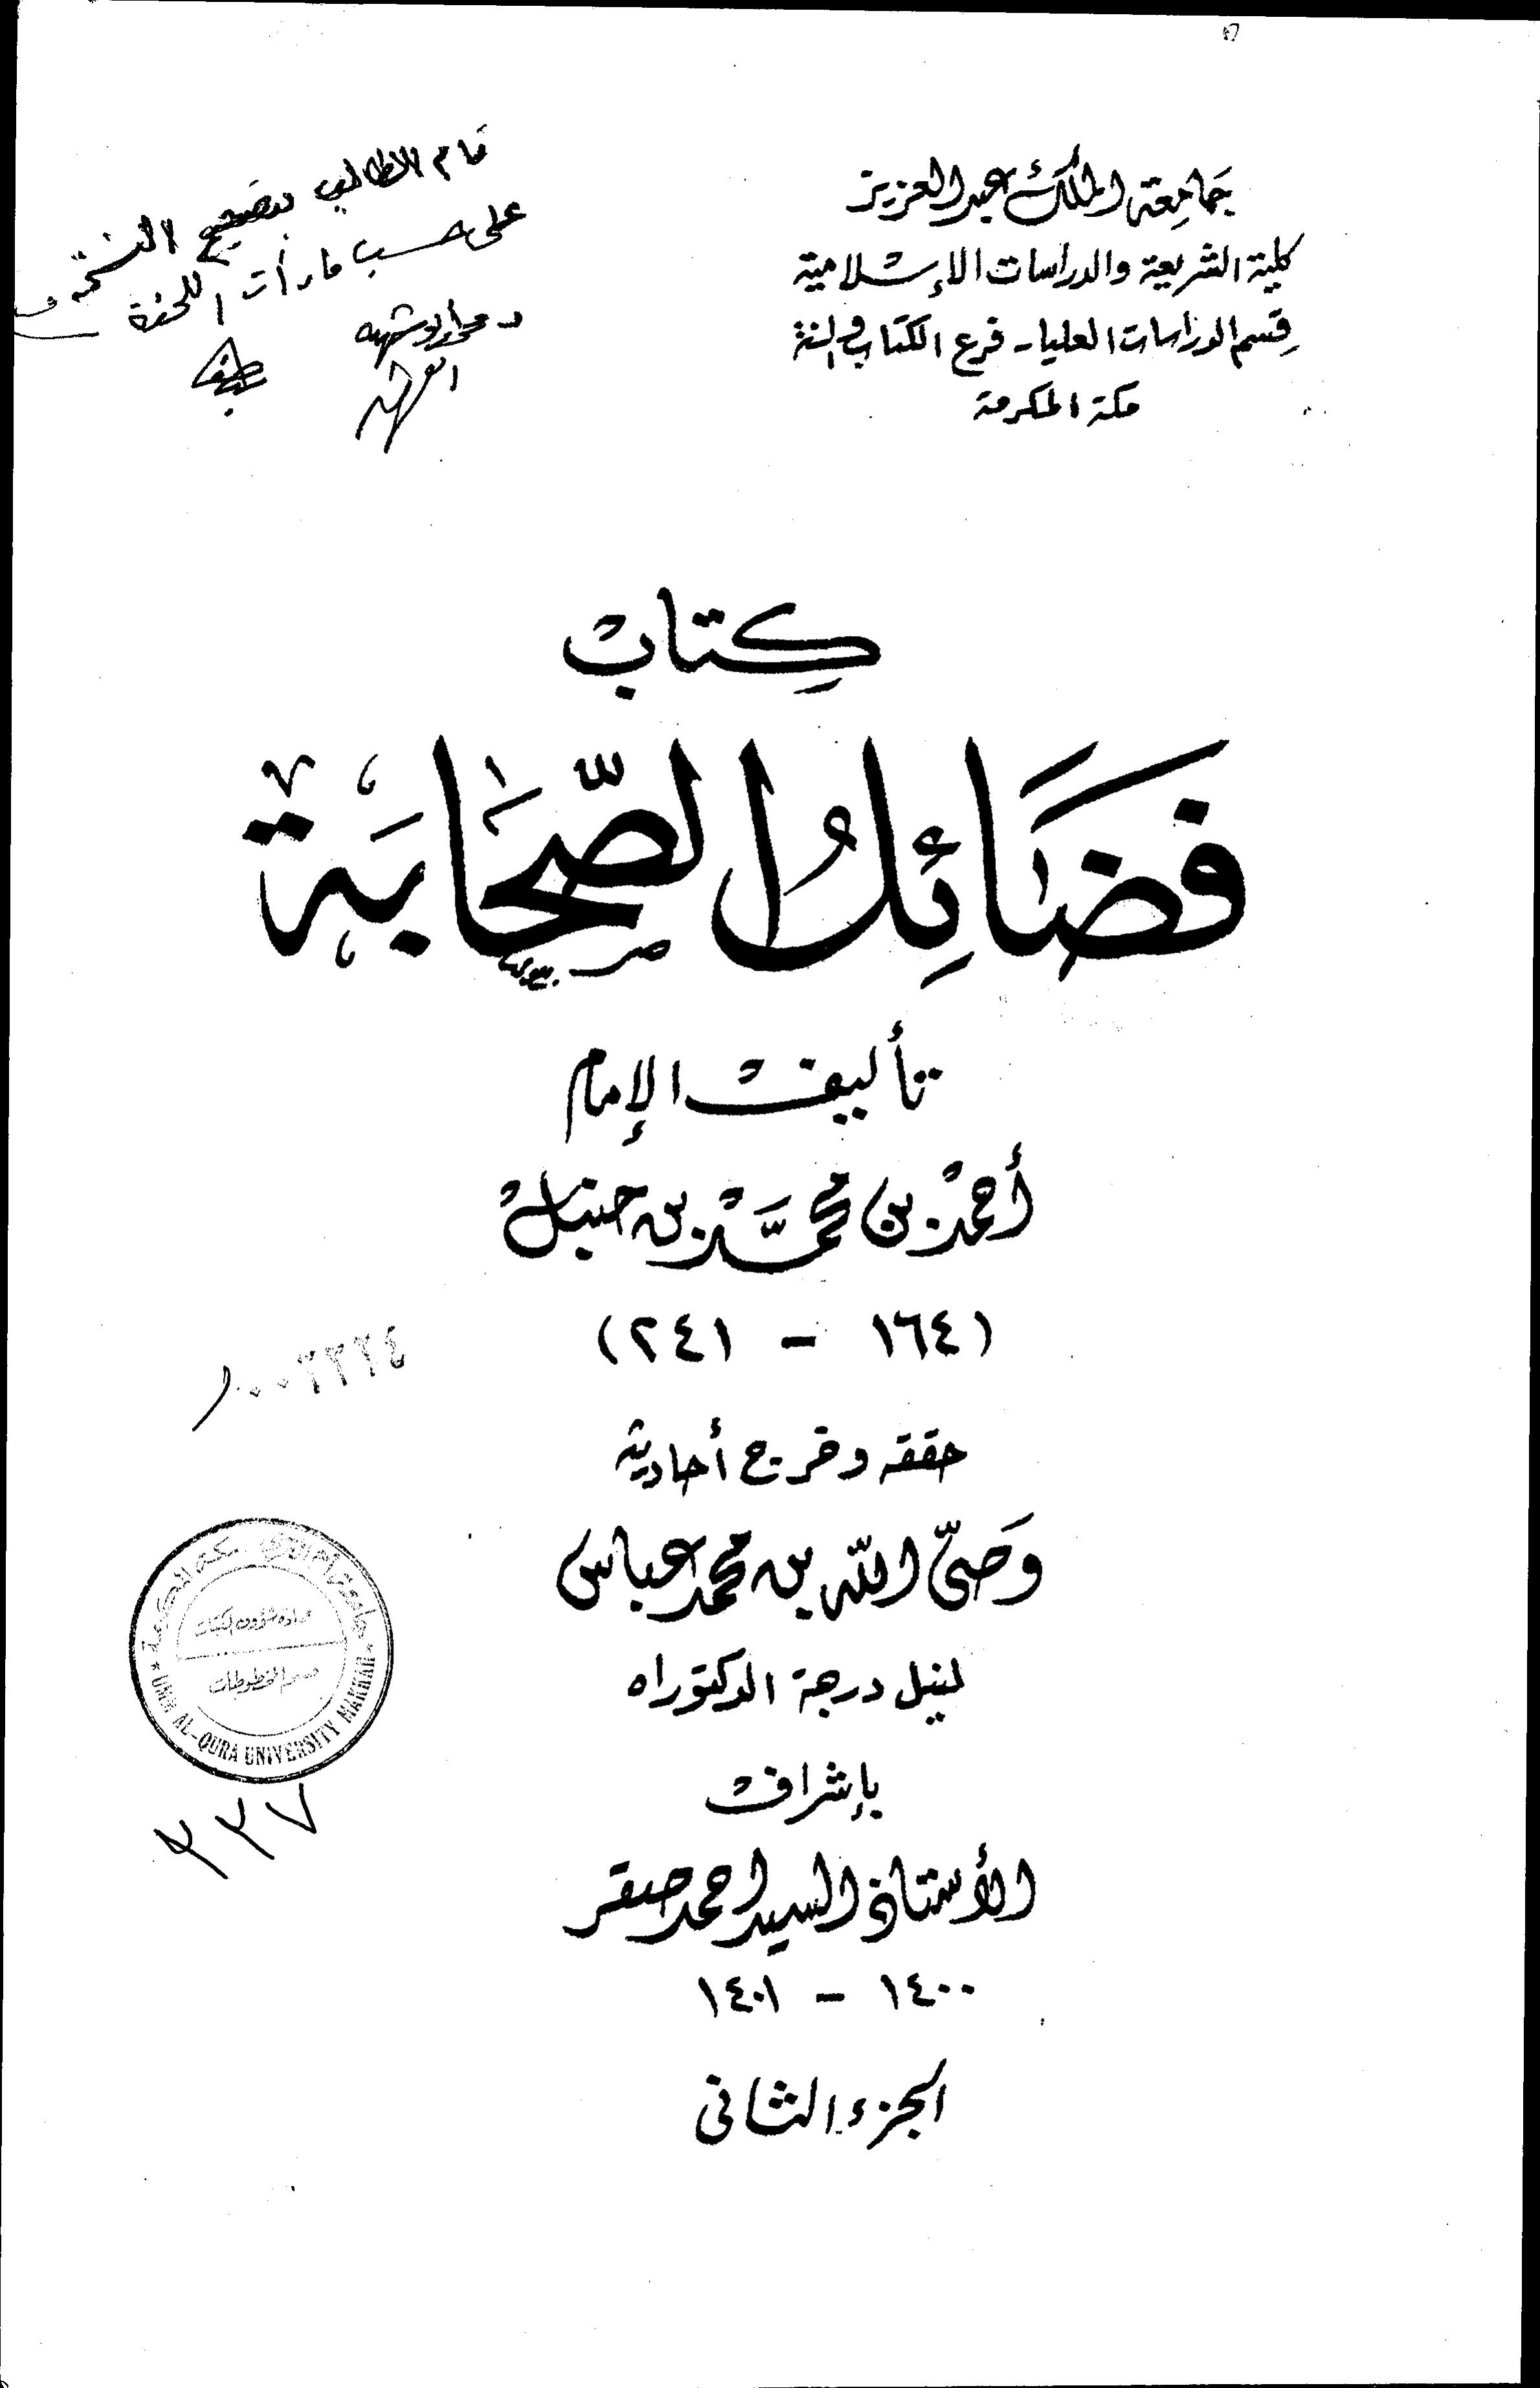 جَامِعَة الملك عبد العزيز
كلية الشريعة والدراسات الإسلامية
قِسم الدراسات العليا - فرع الكتاب والسنة
مكة المكرمة
قام الطالب بتصحيح النسخة
على حسب ما رأت اللجنة
د محمد أبو شهبه
كِتاب
فَضَائِلُ الصَّحَابَة
تأليف الإمام
أحمد بن محمَّد بن حنبل
(١٦٤ - ٢٤١)
حققه وخرج أحاديثه
وَصيّ اللّه بن محمد عباس
لنيل درجة الدكتوراه
بإشراف
الأستاذ السيد احمد صقر
١٤٠٠ - ١٤٠١
الجزء الثانى
جامعة أم القرى مكة المكرمة
عمادة شؤون المكتبات
قسم المخطوطات
UMM AL-QURA UNIVERSITY MAKKAH
٣٢٧